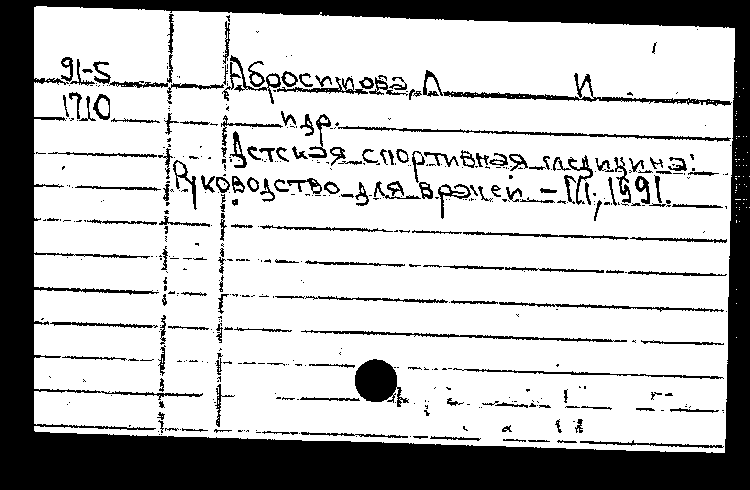 91-5 Абросимова, Л И.
1710 и др.
Детская спортивная медицина:
Руководство для врачей. - М., 1991.